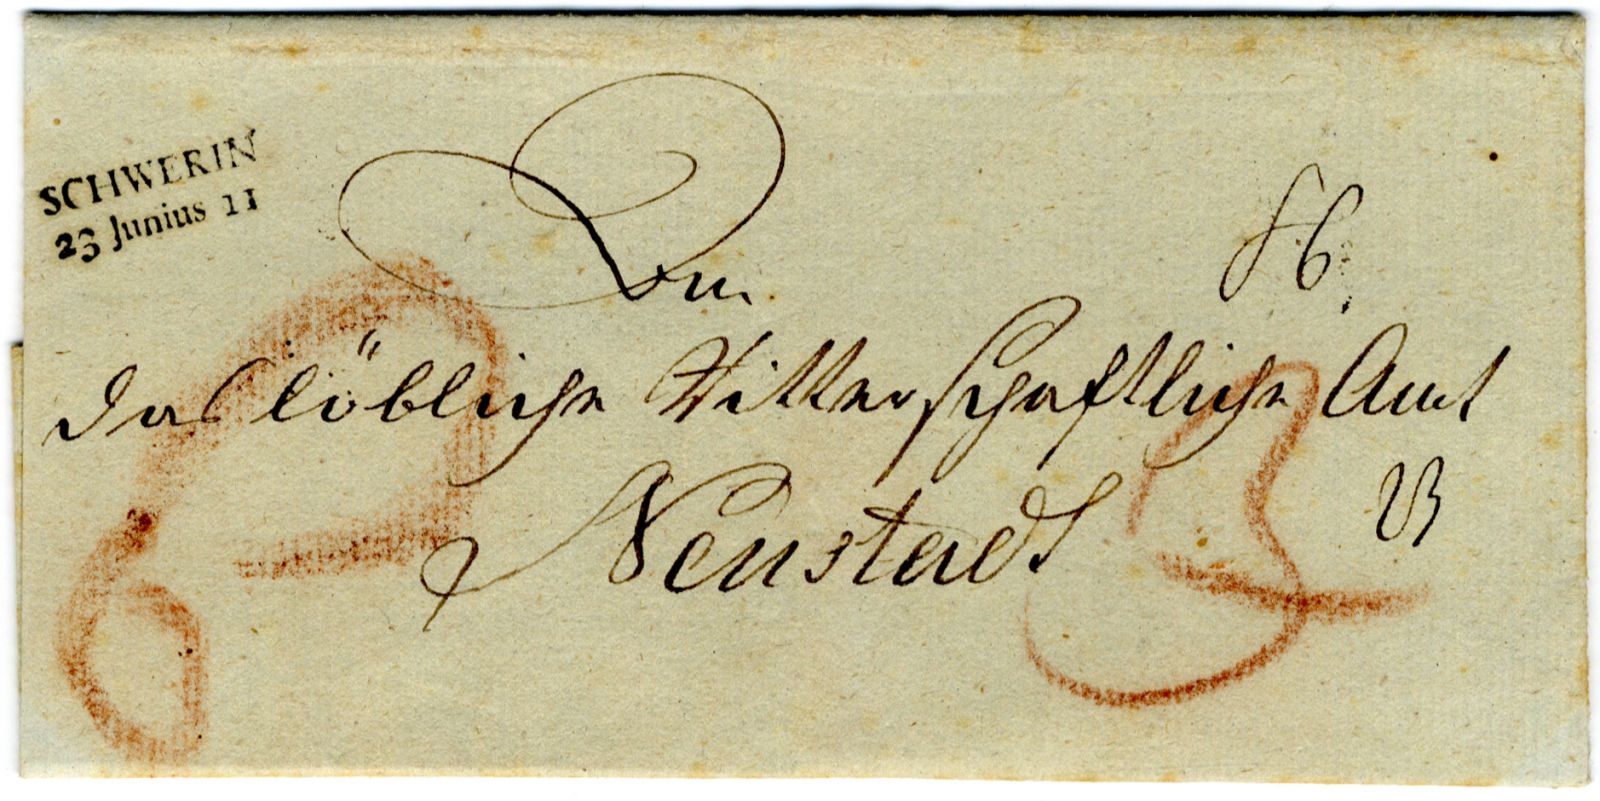 SCHWERIN
23 Junius 11
An
das löbliche Ritterschaftliche Amt
Neustadt